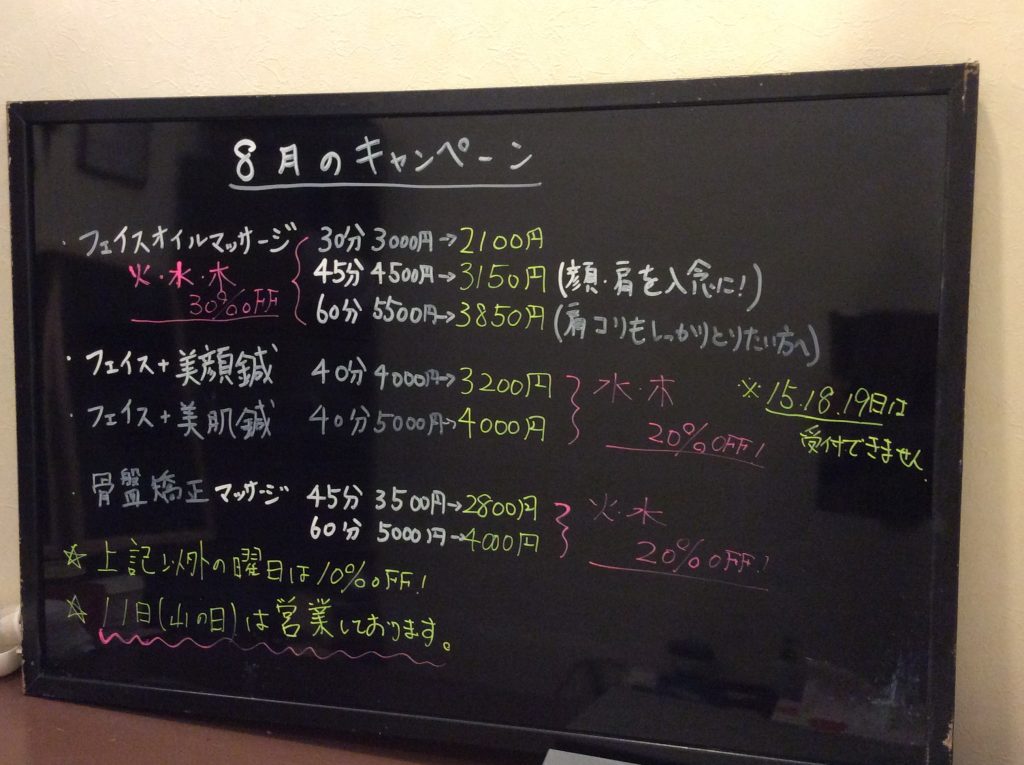 8月のキャンペーン
・フェイスオイルマッサージ 30分 3000円→2100円
火・水・木 45分 4500円→3150円 (顔・肩を入念に!)
30%OFF 60分 5500円→3850円 (肩コリもしっかりとりたい方へ)
・フェイス+美顔鍼 40分 4000円→3200円 水・木 ※15.18.19日は
・フェイス+美肌鍼 40分 5000円→4000円 20%OFF! 受付できません
・骨盤矯正マッサージ 45分 3500円→2800円 火・水
60分 5000円→4000円 20%OFF!
☆上記以外の曜日は10%OFF!
☆11日(山の日)は営業しております。